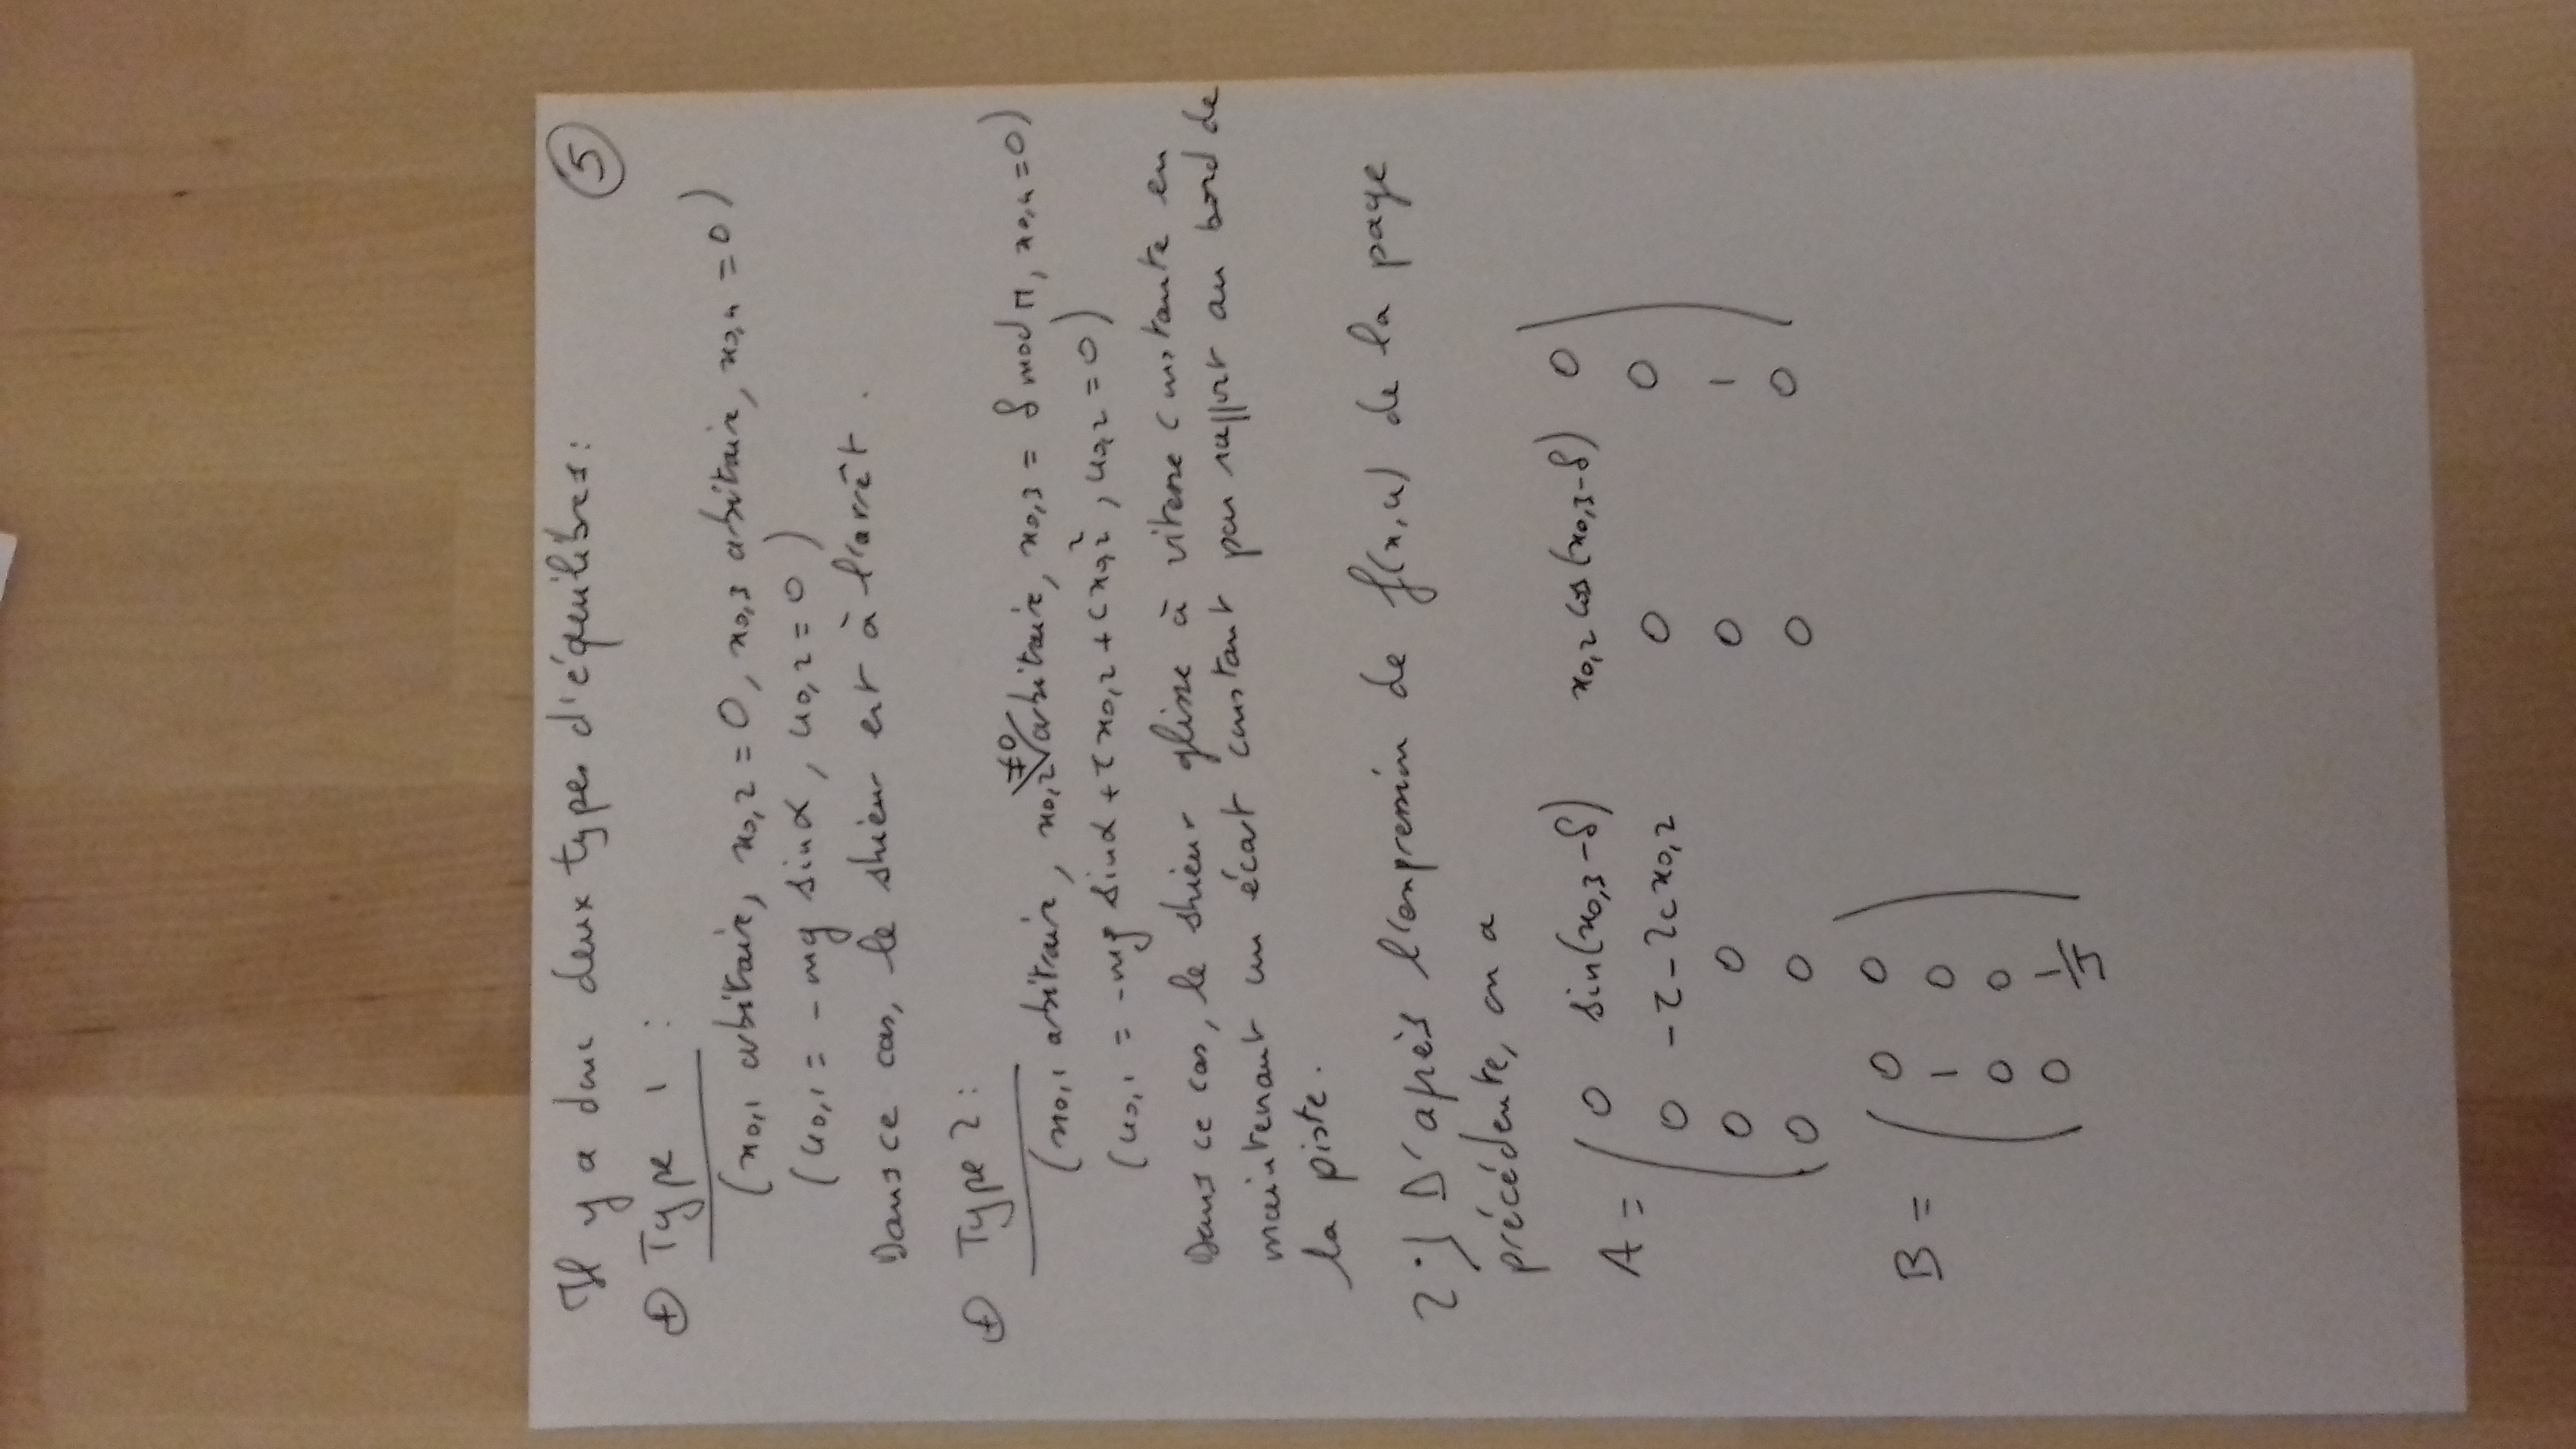 Il y a donc deux types d'équilibres : ⑤
⊕ Type 1 :
(x0,1 arbitraire, x0,2 = 0, x0,3 arbitraire, x0,4 = 0)
(u0,1 = - mg sinα, u0,2 = 0)
Dans ce cas, le skieur est à l'arrêt.
⊕ Type 2 :
(x0,1 arbitraire, x0,2 ≠0 arbitraire, x0,3 = δ mod π, x0,4 = 0)
(u0,1 = -mg sinα + τ x0,2 + c x0,2², u0,2 = 0)
Dans ce cas, le skieur glisse à vitesse constante en
maintenant un écart constant par rapport au bord de
la piste.
2°) D'après l'expression de f(x,u) de la page
précédente, on a
A = ( 0 sin(x0,3 - δ) x0,2 cos(x0,3 - δ) 0
0 -τ - 2c x0,2 0 0
0 0 0 1
0 0 0 0 )
B = ( 0 0
1 0
0 0
0 1/J )